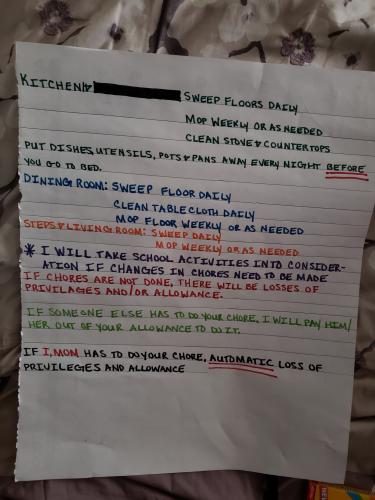 KITCHEN & SWEEP FLOORS DAILY
MOP WEEKLY OR AS NEEDED
CLEAN STOVE & COUNTERTOPS
PUT DISHES, UTENSILS, POTS & PANS AWAY EVERY NIGHT BEFORE
YOU GO TO BED.
DINING ROOM: SWEEP FLOOR DAILY
CLEAN TABLE CLOTH DAILY
MOP FLOOR WEEKLY OR AS NEEDED
STEPS & LIVING ROOM: SWEEP DAILY
MOP WEEKLY OR AS NEEDED
* I WILL TAKE SCHOOL ACTIVITIES INTO CONSIDER-
ATION IF CHANGES IN CHORES NEED TO BE MADE
IF CHORES ARE NOT DONE, THERE WILL BE LOSSES OF
PRIVILAGES AND/OR ALLOWANCE.
IF SOMEONE ELSE HAS TO DO YOUR CHORE, I WILL PAY HIM/
HER OUT OF YOUR ALLOWANCE TO DO IT.
IF I, MOM HAS TO DO YOUR CHORE, AUTOMATIC LOSS OF
PRIVILEGES AND ALLOWANCE